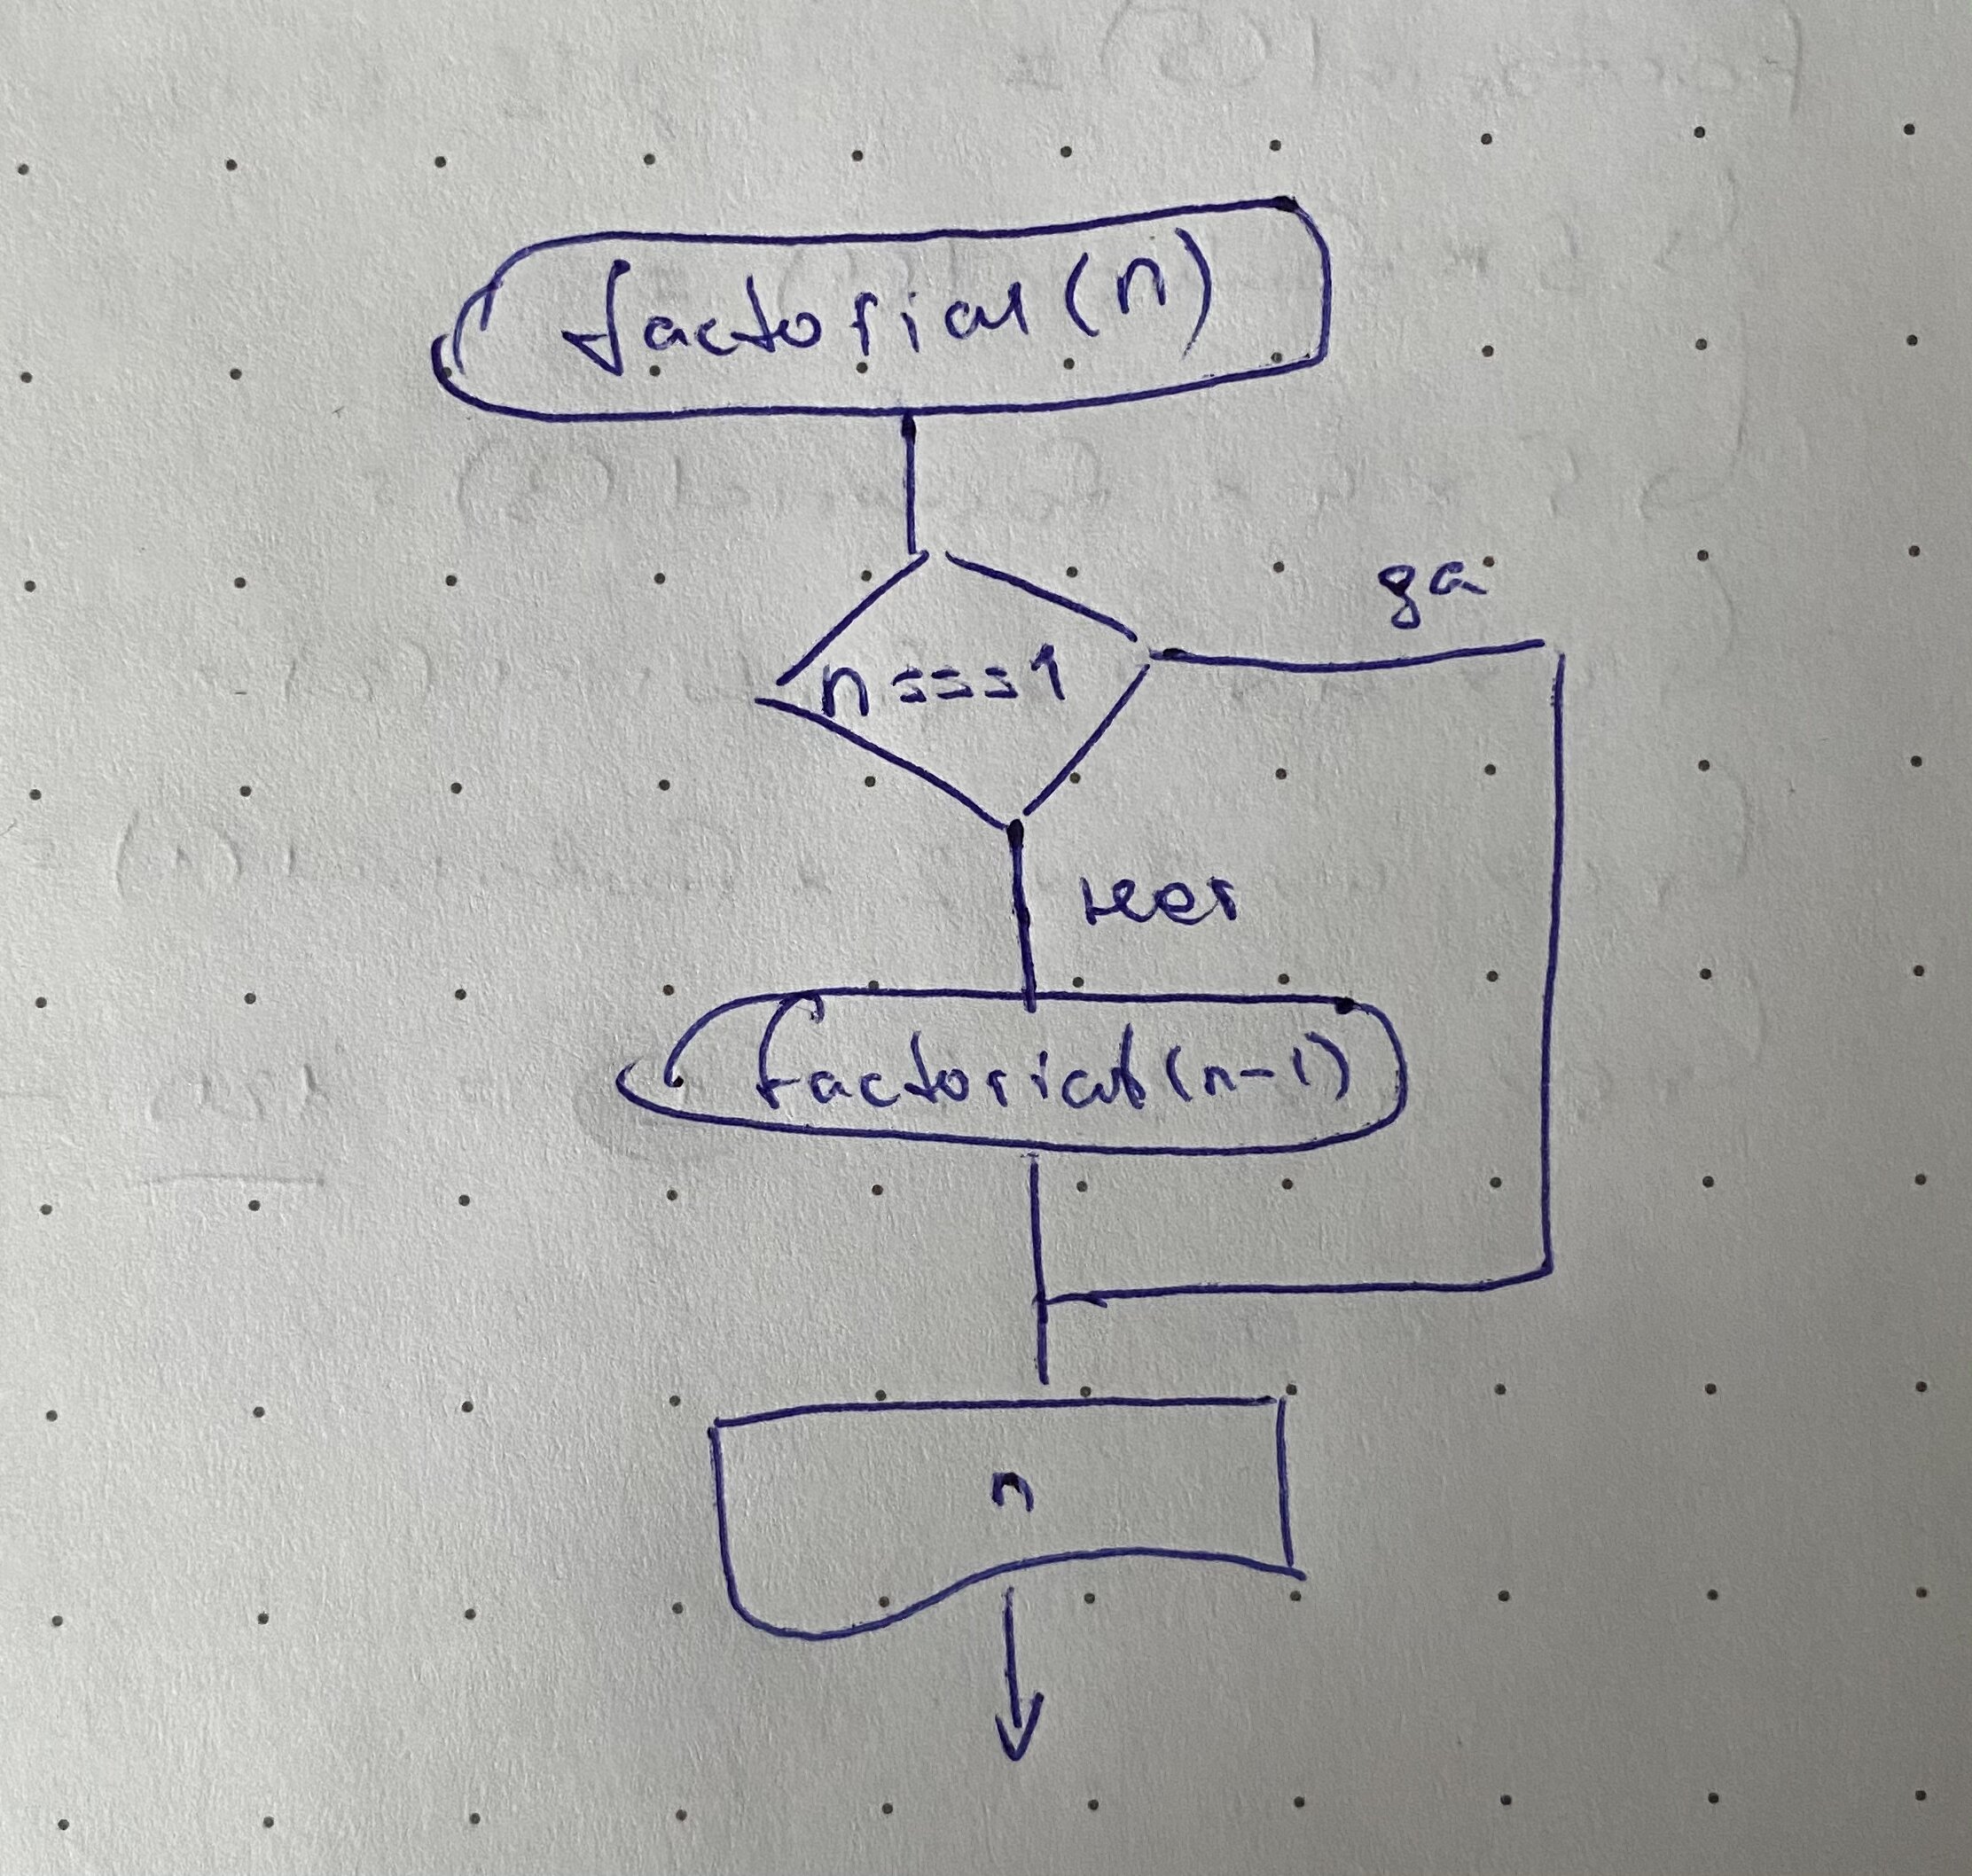 factorial(n)
n===1
да
нет
factorial(n-1)
n